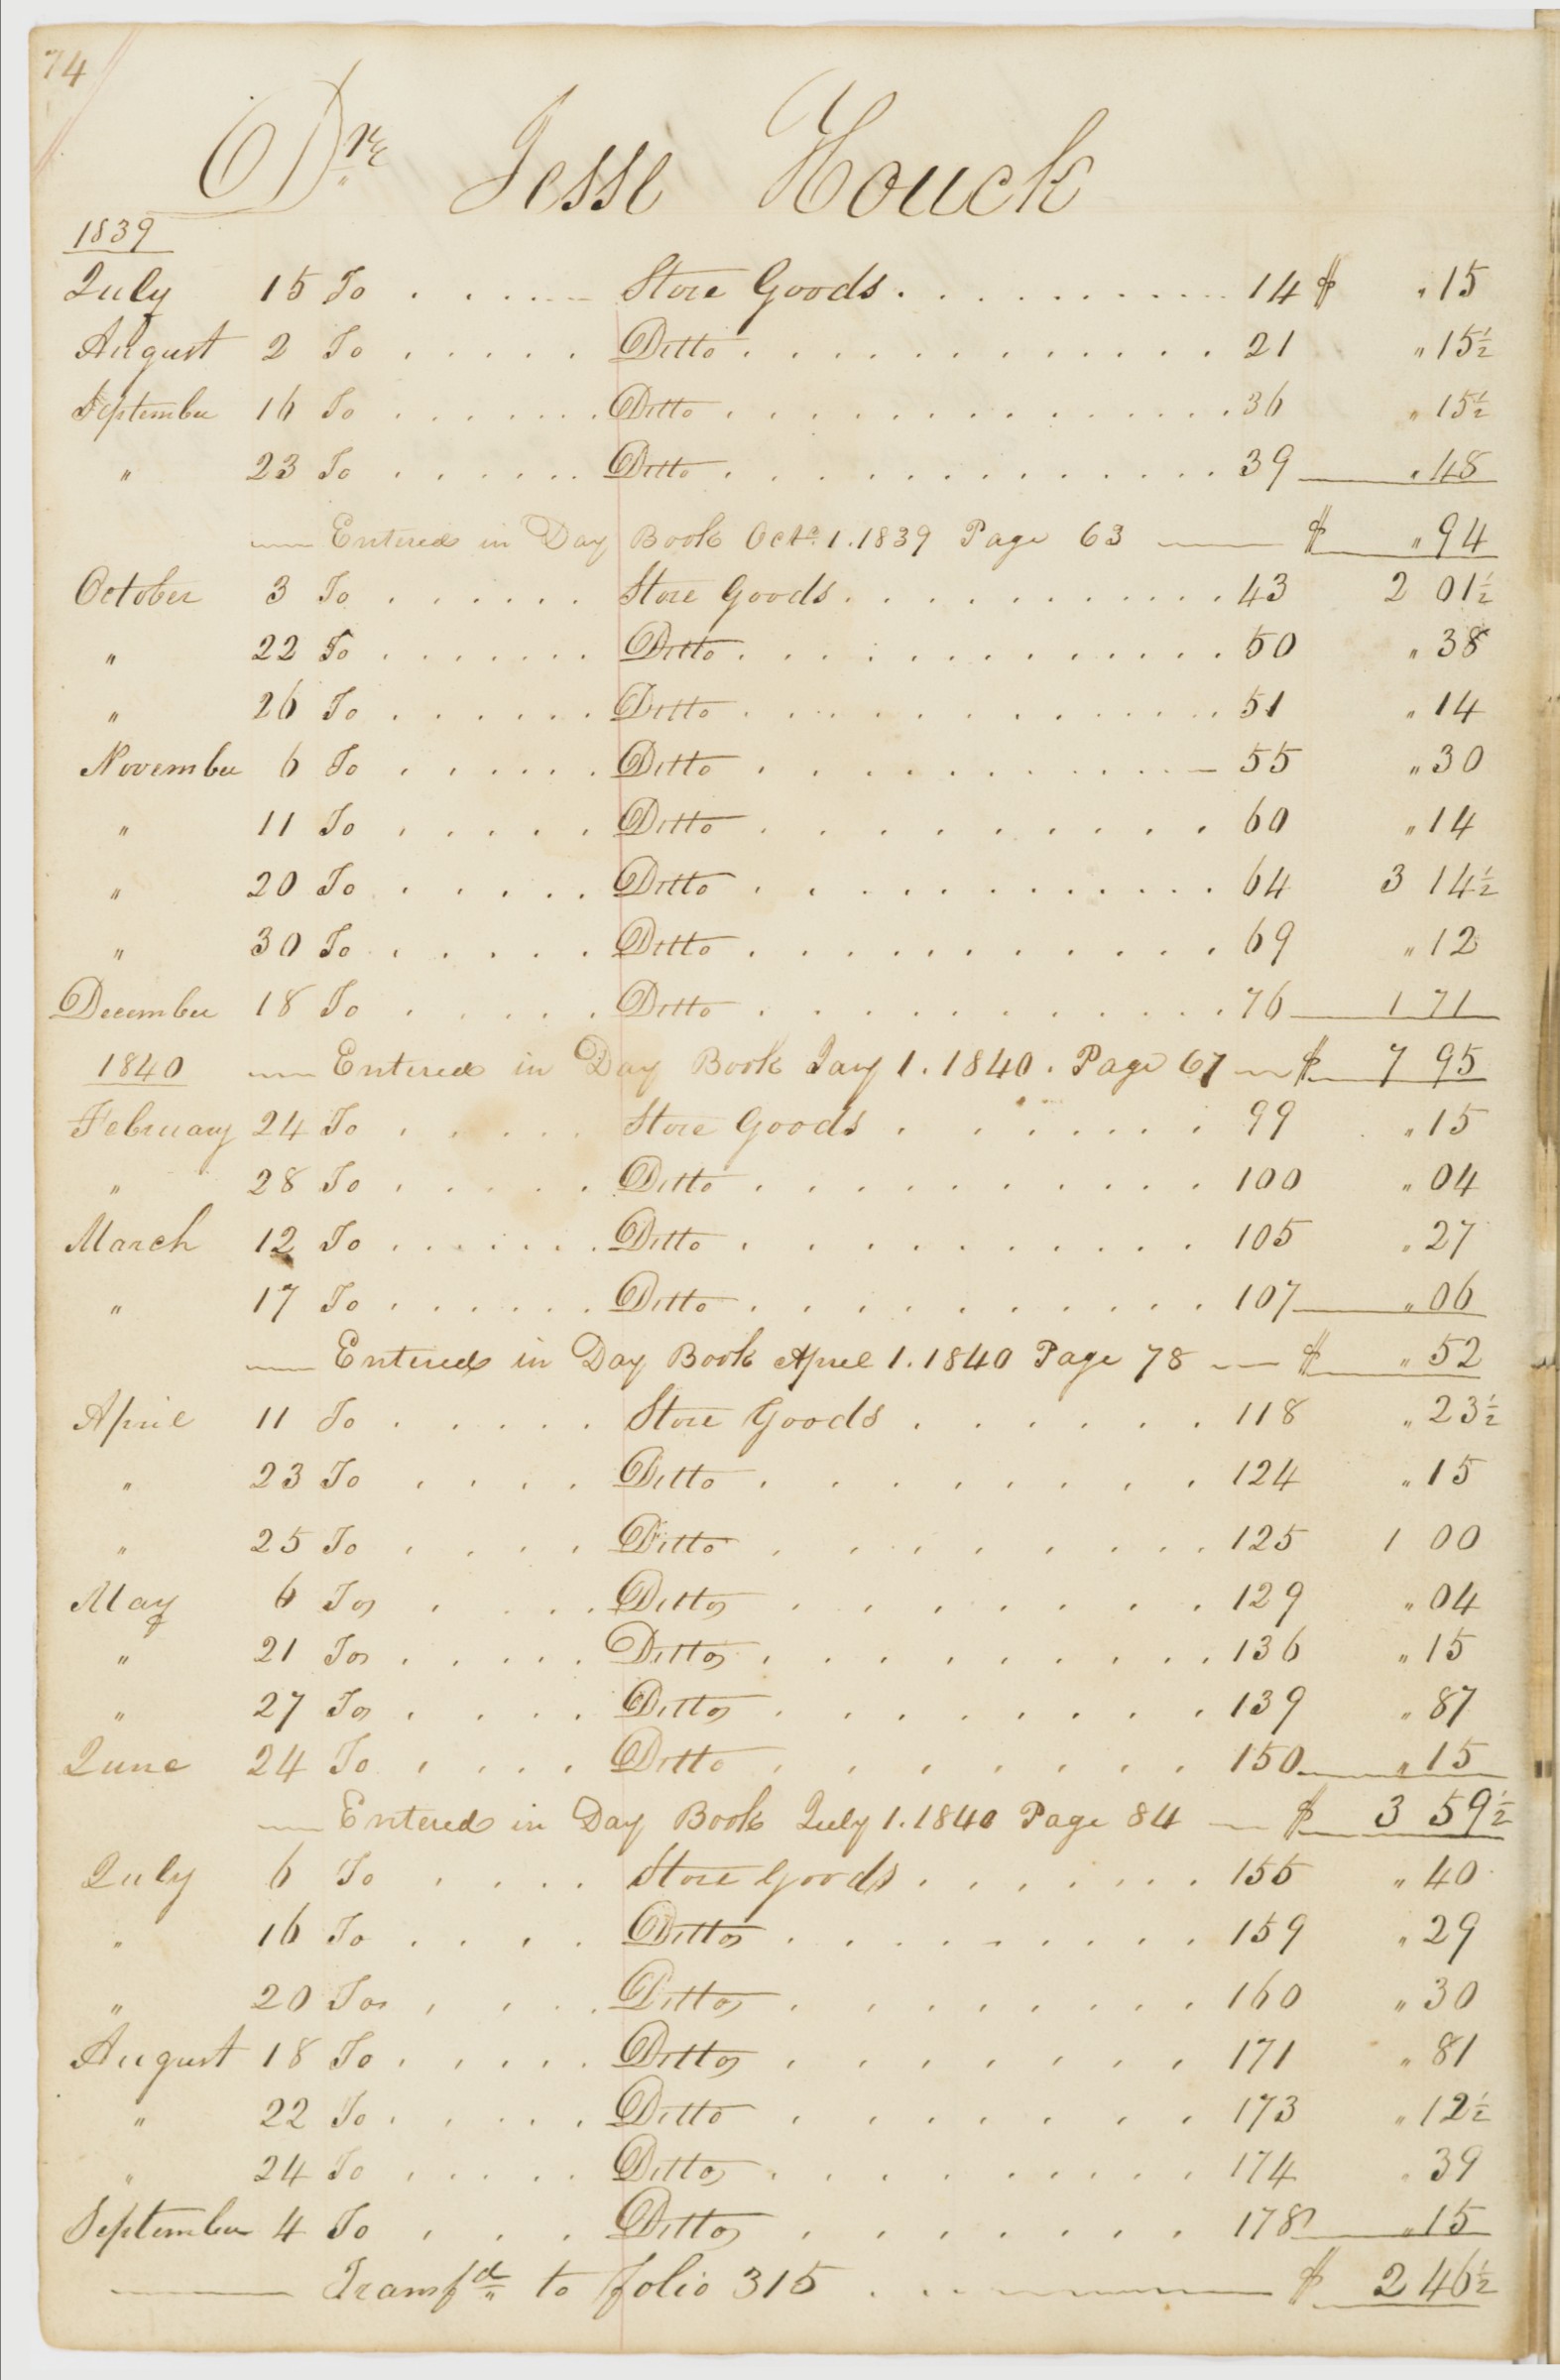 74
Dr. Jesse Houck
1839
July 15 To . . . . . Store Goods . . . . . . . . . . 14 $ " 15
August 2 To . . . . . Ditto . . . . . . . . . . . . 21 " 15½
September 16 To . . . . . . Ditto . . . . . . . . . . . . 36 " 15½
" 23 To . . . . . . Ditto . . . . . . . . . . . . 39 " 48
— Entered in Day Book Octo. 1. 1839 Page 63 — $ " 94
October 3 To . . . . . . Store Goods . . . . . . . . . . . 43 2 01½
" 22 To . . . . . . . Ditto . . . . . . . . . . . . 50 " 38
" 26 To . . . . . . Ditto . . . . . . . . . . . . 51 " 14
November 6 To . . . . . . Ditto . . . . . . . . . . . 55 " 30
" 11 To . . . . . Ditto . . . . . . . . . . 60 " 14
" 20 To . . . . . Ditto . . . . . . . . . . . 64 3 14½
" 30 To . . . . . Ditto . . . . . . . . . . . 69 " 12
December 18 To . . . . . Ditto . . . . . . . . . . . 76 1 71
1840 — Entered in Day Book Jany 1. 1840. Page 67 — $ 7 95
February 24 To . . . . . Store Goods . . . . . . . 99 " 15
" 28 To . . . . . Ditto . . . . . . . . . . 100 " 04
March 12 To . . . . . . Ditto . . . . . . . . . . 105 " 27
" 17 To . . . . . . Ditto . . . . . . . . . . 107 " 06
— Entered in Day Book April 1. 1840 Page 78 — $ " 52
April 11 To . . . . . Store Goods . . . . . . 118 " 23½
" 23 To . . . . Ditto . . . . . . . . . 124 " 15
" 25 To . . . . Ditto . . . . . . . . . 125 1 00
May 6 To . . . . Ditto . . . . . . . . 129 " 04
" 21 To . . . . . Ditto . . . . . . . . . . 136 " 15
" 27 To . . . . Ditto . . . . . . . . . 139 " 87
June 24 To . . . . Ditto . . . . . . . . 150 " 15
— Entered in Day Book July 1. 1840 Page 84 — $ 3 59½
July 6 To . . . . Store Goods . . . . . . . 155 " 40
" 16 To . . . . Ditto . . . . . . . . . 159 " 29
" 20 To . . . . Ditto . . . . . . . . 160 " 30
August 18 To . . . . . Ditto . . . . . . . . 171 " 81
" 22 To . . . . . Ditto . . . . . . . . 173 " 12½
" 24 To . . . . . Ditto . . . . . . . . . 174 " 39
September 4 To . . . Ditto . . . . . . . . 178 " 15
— Transfd to folio 315 . . — $ 2 46½